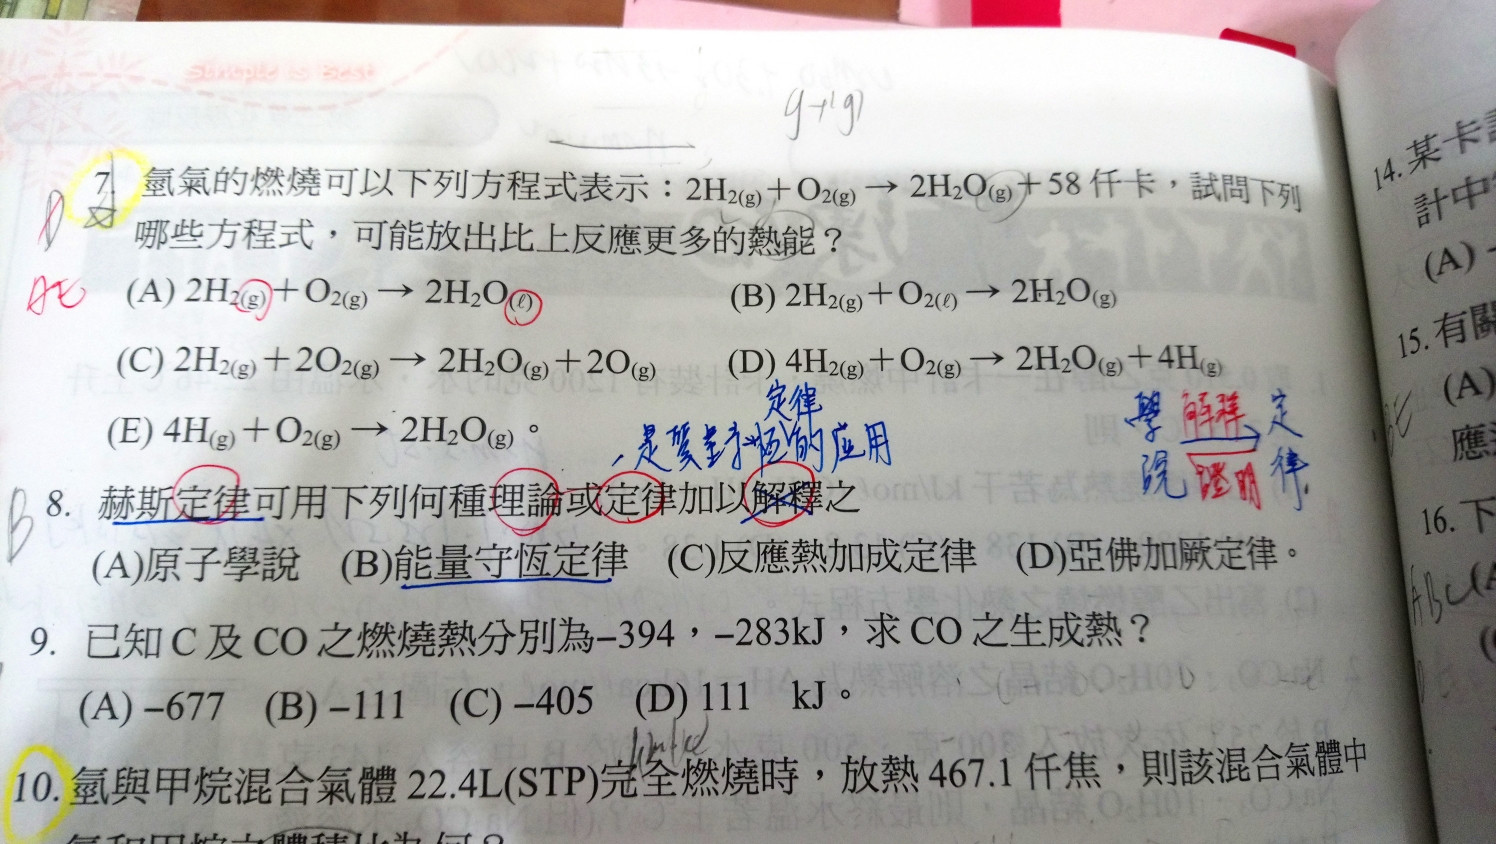 Simple is Best
g+(g)
7. 氫氣的燃燒可以下列方程式表示：2H₂(g)+O₂(g) → 2H₂O(g)+58 仟卡，試問下列
哪些方程式，可能放出比上反應更多的熱能？
AE (A) 2H₂(g)+O₂(g) → 2H₂O(ℓ) (B) 2H₂(g)+O₂(ℓ) → 2H₂O(g)
(C) 2H₂(g)+2O₂(g) → 2H₂O(g)+2O(g) (D) 4H₂(g)+O₂(g) → 2H₂O(g)+4H(g)
(E) 4H(g)+O₂(g) → 2H₂O(g)。
定律
的应用
學 解釋 定
說 證明 律
B 8. 赫斯定律可用下列何種理論或定律加以解釋之
(A)原子學說 (B)能量守恆定律 (C)反應熱加成定律 (D)亞佛加厥定律。
9. 已知 C 及 CO 之燃燒熱分別為–394，–283kJ，求 CO 之生成熱？
(A) –677 (B) –111 (C) –405 (D) 111 kJ。
10. 氫與甲烷混合氣體 22.4L(STP)完全燃燒時，放熱 467.1 仟焦，則該混合氣體中
氫和甲烷之體積比為何？
14. 某卡
計中
(A)
15. 有關
(A)
BE
應
16. 下
ABC (A